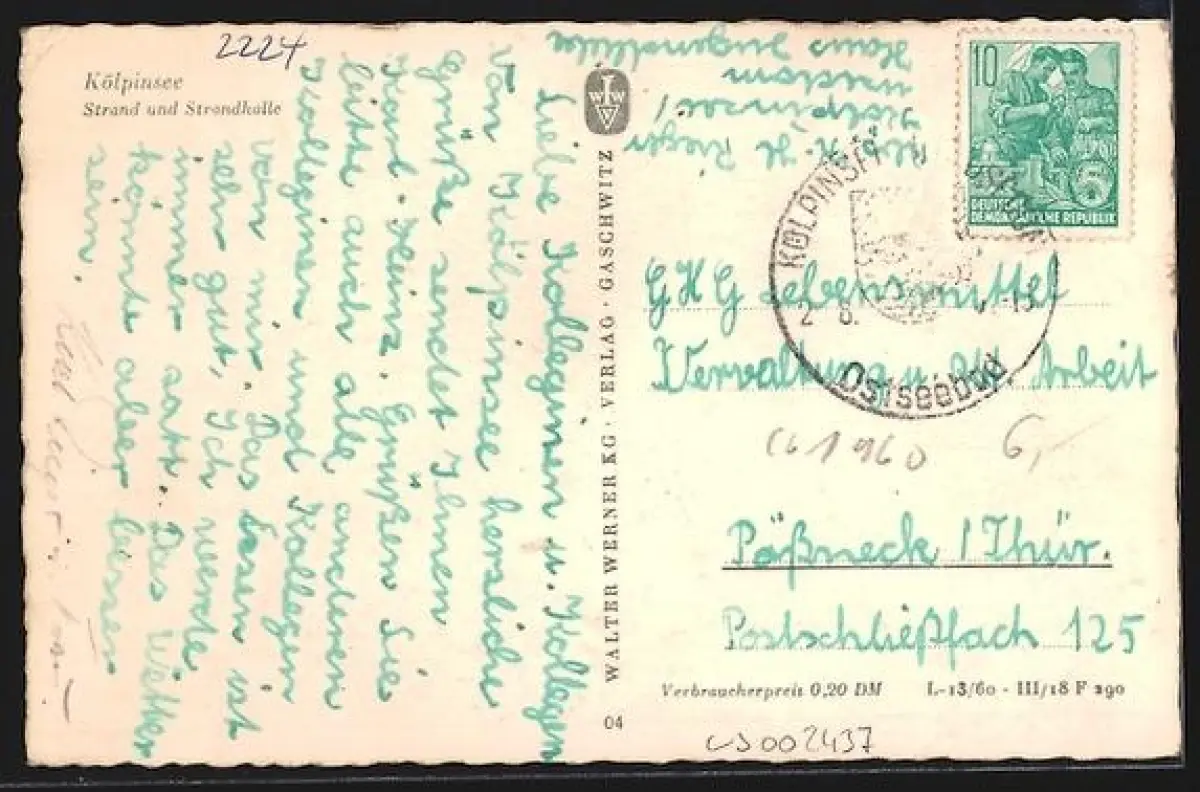 2224
Kölpinsee
Strand und Strandhalle
Liebe Kolleginen u. Kollegen
Von Kölpinsee hersliche
Grüße sendet Ihnen
Karl-Heinz. Grüßen Sie
bitte auch alle anderen
Kolleginen und Kollegen
von mir. Das Essen ist
sehr gut, Ich werde
immer satt. Das Wetter
könnte aber besser
sein.
WALTER WERNER KG · VERLAG · GASCHWITZ
04
W W
K. H. Rieger
Kölpinsee/
Usedom
Haus
10
DEUTSCHE
DEMOKRATISCHE REPUBLIK
KÖLPINSEE
2 8.
Ostseebad
GHG Lebensmittel
Verwaltung u. Abt. Arbeit
1960 6,-
Pößneck / Thür.
Postschließfach 125
Verbraucherpreis 0,20 DM L-13/60 - III/18 F 290
CS002437